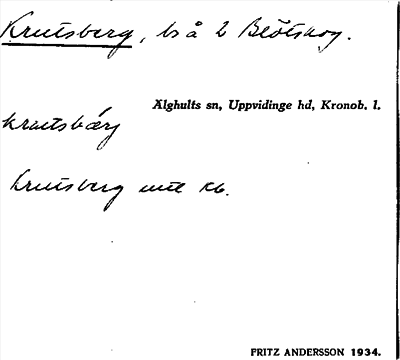 Krutsberg, bs å 2 Blötskog.
Älghults sn, Uppvidinge hd, Kronob. l.
krutsbærj
krutsberg mtl kb.
FRITZ ANDERSSON 1934.